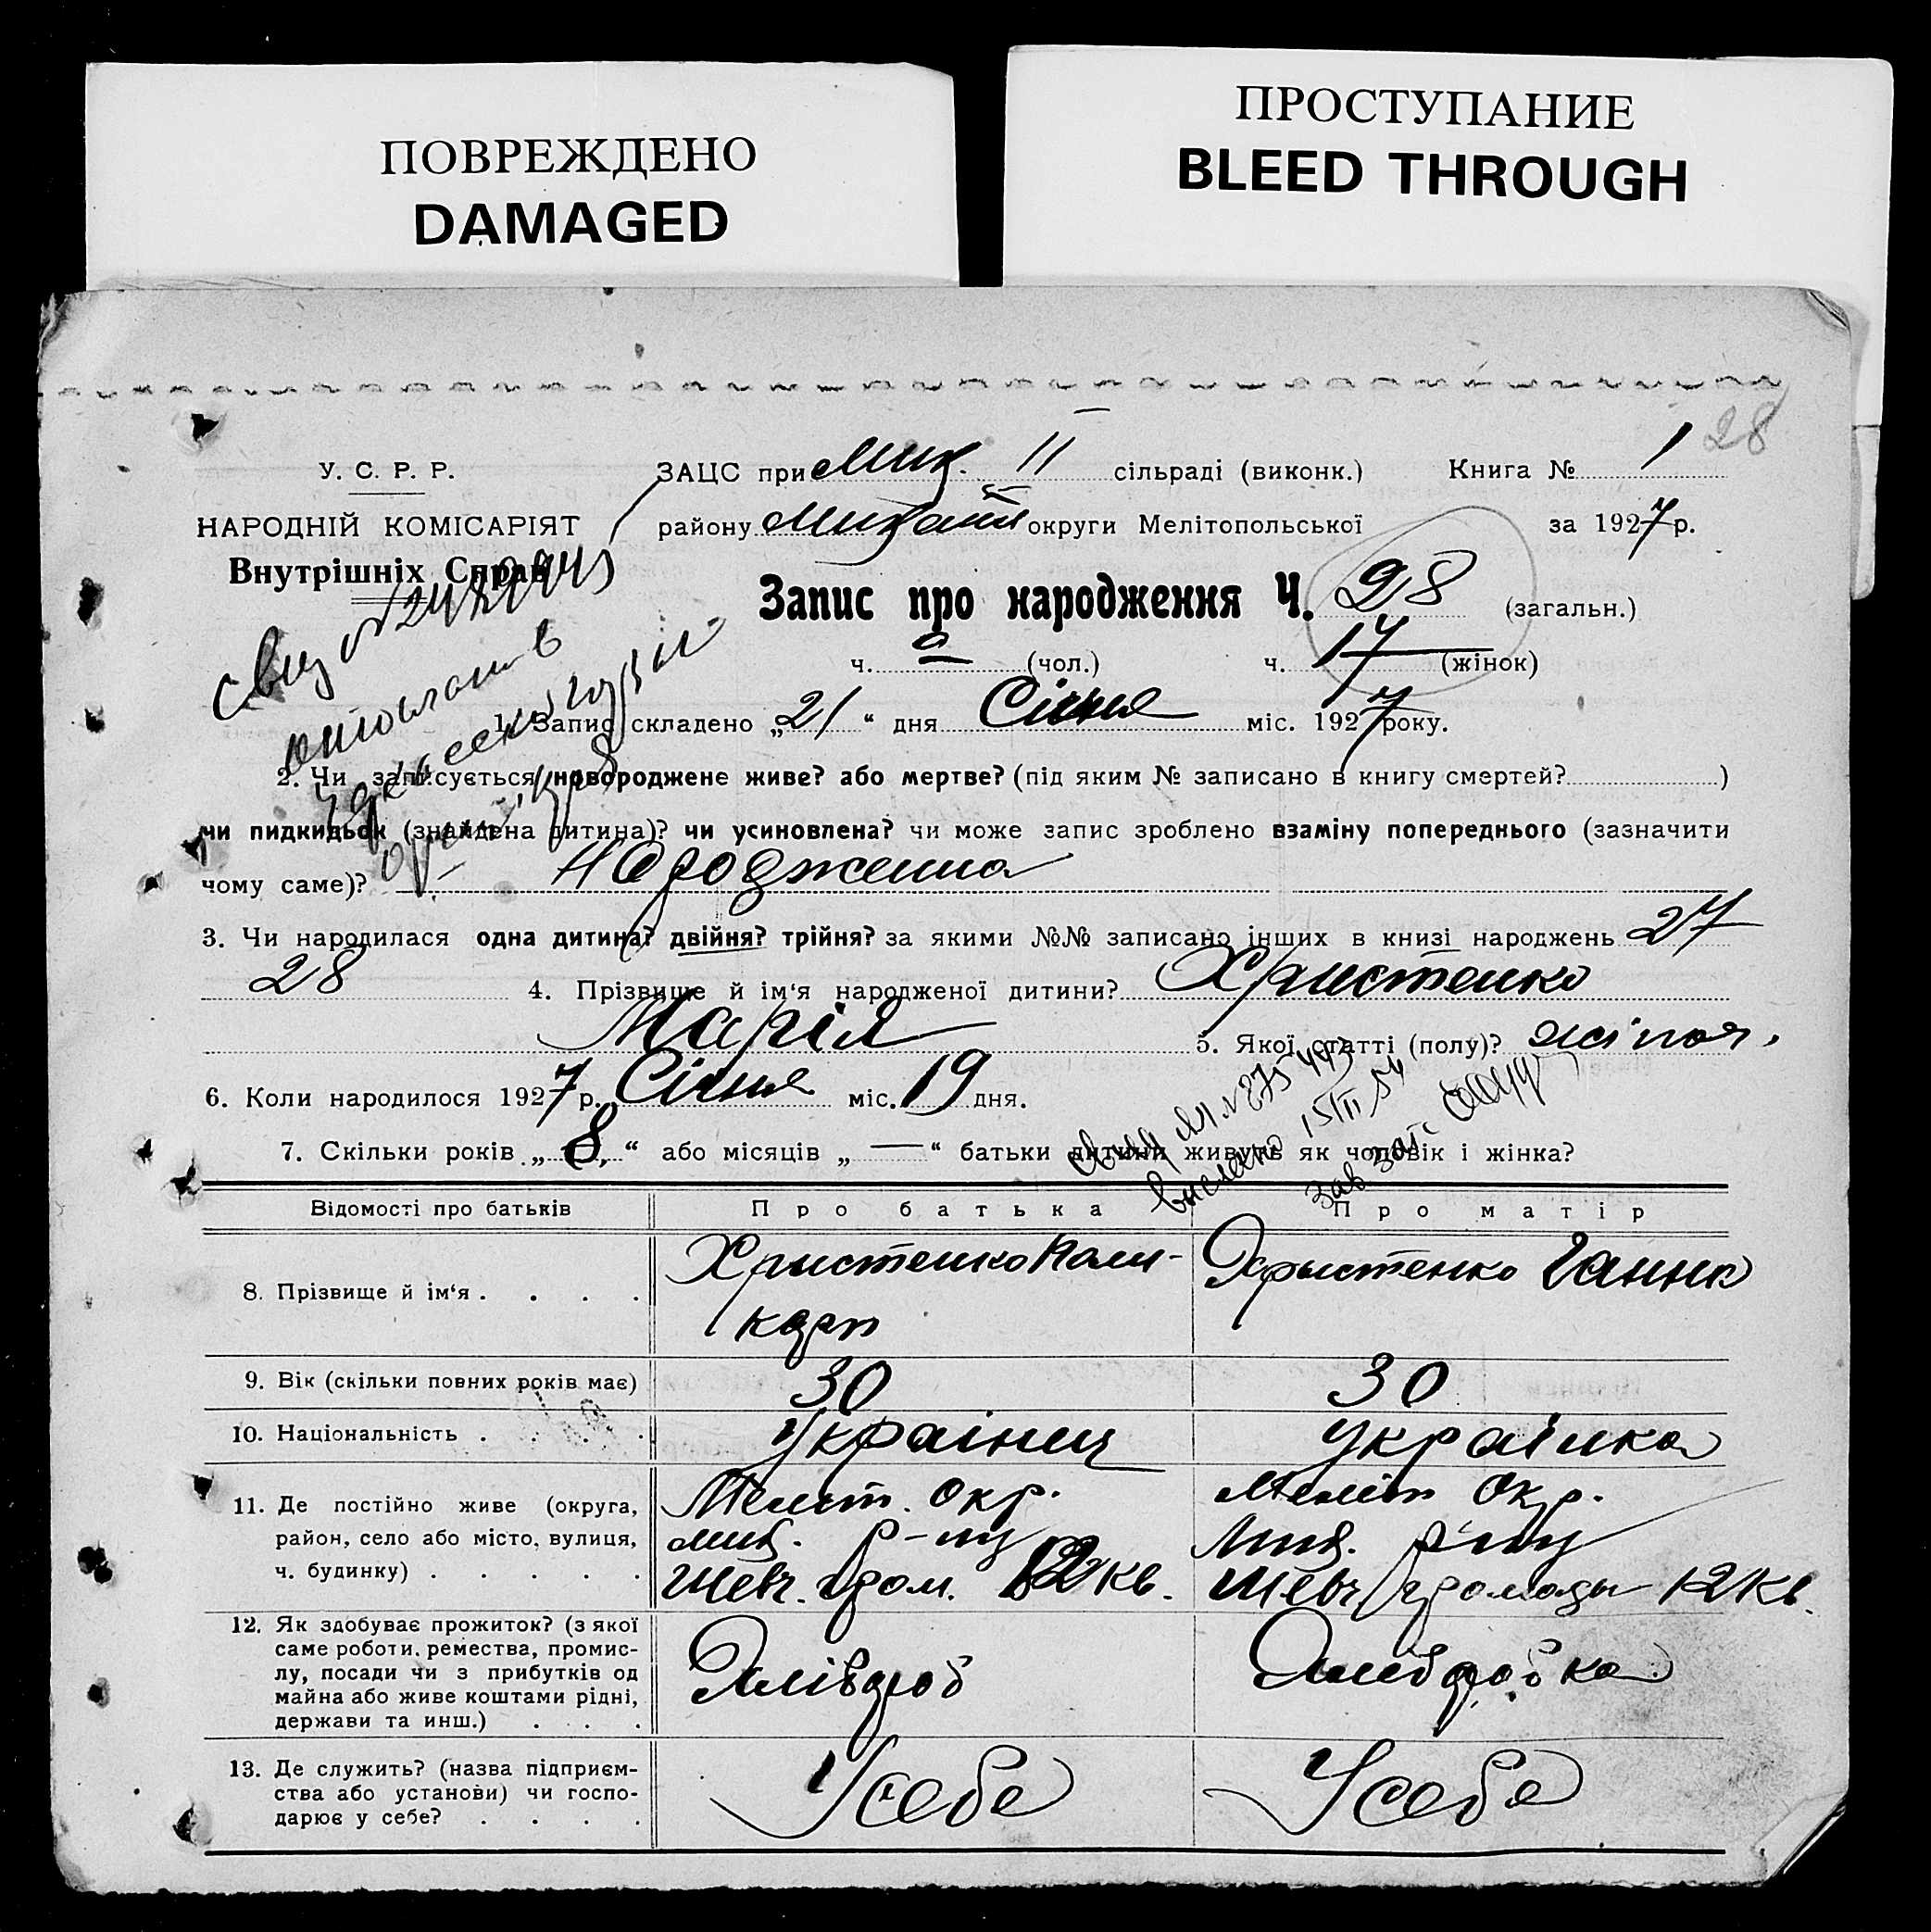 ПОВРЕЖДЕНО
DAMAGED
ПРОСТУПАНИЕ
BLEED THROUGH
28
У. С. Р. Р.
ЗАЦС при Мих. II сільраді (виконк.) Книга № 1
НАРОДНІЙ КОМІСАРІЯТ
району округи Мелітопольської за 1927 р.
Внутрішніх Справ
Запис про народження Ч. 28 (загальн.)
ч. (чол.) ч. 17 (жінок)
1. Запис складено „21“ дня Січня міс. 1927 року.
2. Чи записується новороджене живе? або мертве? (під яким № записано в книгу смертей? )
чи пидкидьок (знайдена дитина)? чи усиновлена? чи може запис зроблено взаміну попереднього (зазначити
чому саме)? Народження
3. Чи народилася одна дитина? двійня? трійня? за якими №№ записано інших в книзі народжень 27
28 4. Прізвище й ім‘я народженої дитини? Христенко
Марія 5. Якої статті (полу)?
6. Коли народилося 1927 р. Січня міс. 19 дня.
7. Скільки років „8“ або місяців „—“ батьки дитини живуть як чоловік і жінка?
Відомості про батьків Про батька Про матір
8. Прізвище й ім‘я . . . . Христенко Поли-
карп
Христенко Ганна
9. Вік (скільки повних років має) 30 30
10. Національність . . . . Українец Українка
11. Де постійно живе (округа,
район, село або місто, вулиця,
ч. будинку) . . . . .
Меліт. Окр.
Мих. р-ну
Шевч. гром. 12 кв.
Меліт Окр.
Мих. р-ну
Шевч громады 12 кв.
12. Як здобуває прожиток? (з якої
саме роботи, ремества, промис-
лу, посади чи з прибутків од
майна або живе коштами рідні,
держави та инш.) . . .
Хлівороб
Хліборобка
13. Де служить? (назва підприєм-
ства або установи) чи госпо-
дарює у себе? . . . .
У себе
У себе